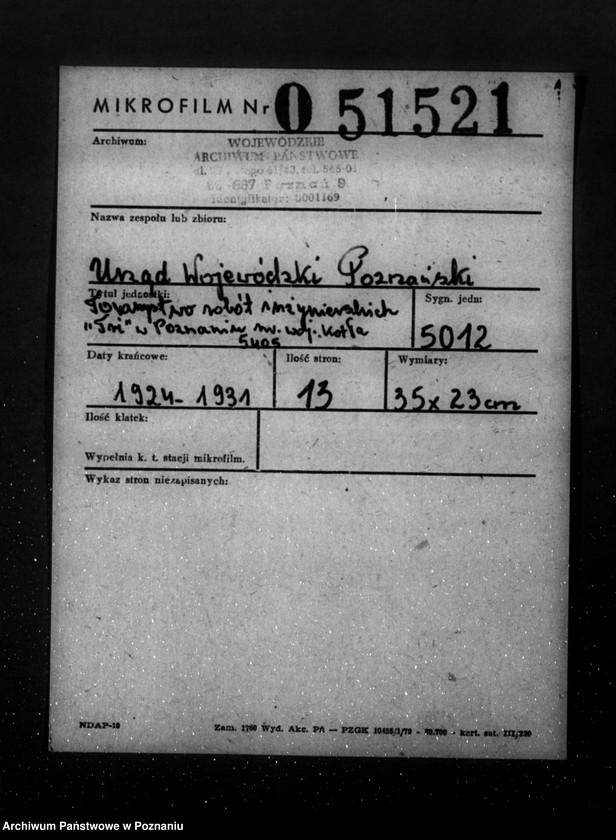 MIKROFILM Nr 0 51521
Archiwum:
WOJEWÓDZKIE
ARCHIWUM PAŃSTWOWE
41/43, tel. 545-01
Poznań 9
identyfikator: 0001169
Nazwa zespołu lub zbioru:
Urząd Wojewódzki Poznański
Tytuł jednostki:
robót inżynierskich
w Poznaniu nr. woj. Kotła
5405
Sygn. jedn:
5012
Daty krańcowe:
1924 - 1931
Ilość stron:
13
Wymiary:
35 x 23 cm
Ilość klatek:
Wypełnia k. t. stacji mikrofilm.
Wykaz stron niezapisanych:
NDAP-10
Zam. 1760 Wyd. Akc. PA — PZGK 10458/1/79 - 40.700 - kart. sat. III/220
Archiwum Państwowe w Poznaniu